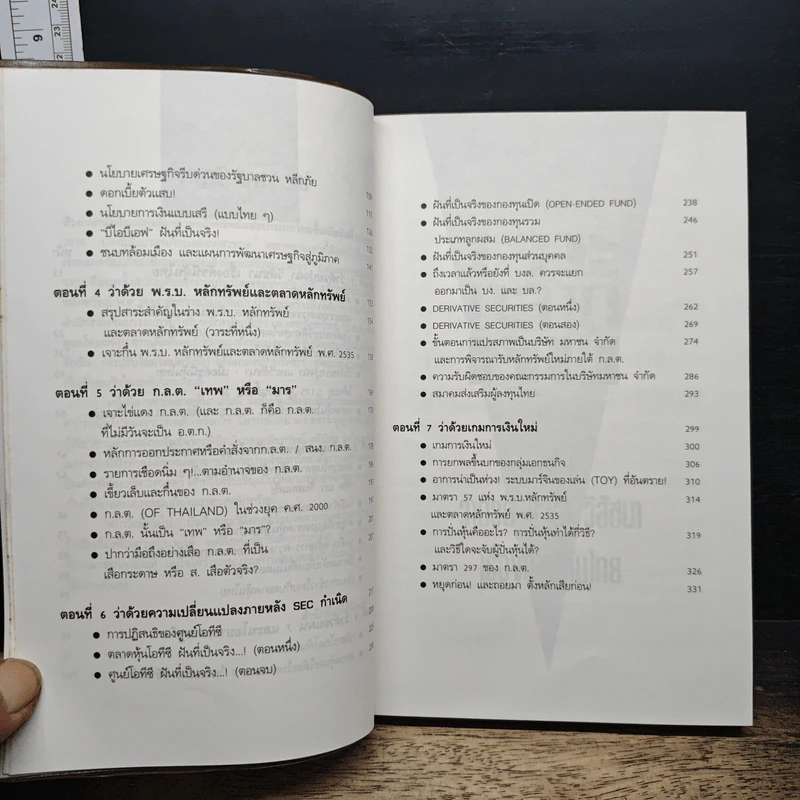 9
24
23
22
• นโยบายเศรษฐกิจรีบด่วนของรัฐบาลชวน หลีกภัย
• ดอกเบี้ยตัวแสบ!
• นโยบายการเงินแบบเสรี (แบบไทย ๆ)
• "บีไอบีเอฟ" ฝันที่เป็นจริง!
• ชนบทล้อมเมือง และแผนการพัฒนาเศรษฐกิจสู่ภูมิภาค
ตอนที่ 4 ว่าด้วย พ.ร.บ. หลักทรัพย์และตลาดหลักทรัพย์
• สรุปสาระสำคัญในร่าง พ.ร.บ. หลักทรัพย์
และตลาดหลักทรัพย์ (วาระที่หนึ่ง)
• เจาะกึ๋น พ.ร.บ. หลักทรัพย์และตลาดหลักทรัพย์ พ.ศ. 2535
ตอนที่ 5 ว่าด้วย ก.ล.ต. "เทพ" หรือ "มาร"
• เจาะไข่แดง ก.ล.ต. (และ ก.ล.ต. ก็คือ ก.ล.ต.
ที่ไม่มีวันจะเป็น อ.ต.ก.)
• หลักการออกประกาศหรือคำสั่งจากก.ล.ต. / สนง. ก.ล.ต.
• รายการเชือดนิ่ม ๆ!...ตามอำนาจของ ก.ล.ต.
• เขี้ยวเล็บและกึ๋นของ ก.ล.ต.
• ก.ล.ต. (OF THAILAND) ในช่วงยุค ค.ศ. 2000
• ก.ล.ต. นั้นเป็น "เทพ" หรือ "มาร"?
• ปากว่ามือถึงอย่างเสือ ก.ล.ต. ที่เป็น
เสือกระดาษ หรือ ส. เสือตัวจริง?
ตอนที่ 6 ว่าด้วยความเปลี่ยนแปลงภายหลัง SEC กำเนิด
• การปฏิสนธิของศูนย์โอทีซี
• ตลาดหุ้นโอทีซี ฝันที่เป็นจริง...! (ตอนหนึ่ง)
• ศูนย์โอทีซี ฝันที่เป็นจริง...! (ตอนจบ)
• ฝันที่เป็นจริงของกองทุนเปิด (OPEN-ENDED FUND) 238
• ฝันที่เป็นจริงของกองทุนรวม 246
ประเภทลูกผสม (BALANCED FUND)
• ฝันที่เป็นจริงของกองทุนส่วนบุคคล 251
• ถึงเวลาแล้วหรือยังที่ บงล. ควรจะแยก 257
ออกมาเป็น บง. และ บล.?
• DERIVATIVE SECURITIES (ตอนหนึ่ง) 262
• DERIVATIVE SECURITIES (ตอนสอง) 269
• ขั้นตอนการแปรสภาพเป็นบริษัท มหาชน จำกัด 274
และการพิจารณารับหลักทรัพย์ใหม่ภายใต้ ก.ล.ต.
• ความรับผิดชอบของคณะกรรมการในบริษัทมหาชน จำกัด 286
• สมาคมส่งเสริมผู้ลงทุนไทย 293
ตอนที่ 7 ว่าด้วยเกมการเงินใหม่ 299
• เกมการเงินใหม่ 300
• การยกพลขึ้นบกของกลุ่มเอกธนกิจ 306
• อาการน่าเป็นห่วง! ระบบมาร์จินของเล่น (TOY) ที่อันตราย! 310
• มาตรา 57 แห่ง พ.ร.บ.หลักทรัพย์ 314
และตลาดหลักทรัพย์ พ.ศ. 2535
• การปั่นหุ้นคืออะไร? การปั่นหุ้นทำได้กี่วิธี? 319
และวิธีใดจะจับผู้ปั่นหุ้นได้?
• มาตรา 297 ของ ก.ล.ต. 326
• หยุดก่อน! และถอยมา ตั้งหลักเสียก่อน! 331